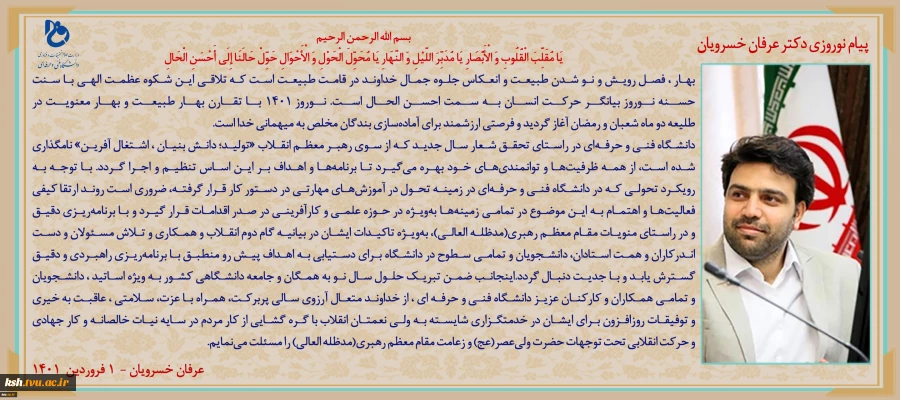 پیام نوروزی دکتر عرفان خسرویان
بسم الله الرحمن الرحیم
یَا مُقَلِّبَ الْقُلُوبِ وَ الْأَبْصَارِ یَا مُدَبِّرَ اللَّیْلِ وَ النَّهَارِ یَا مُحَوِّلَ الْحَوْلِ وَ الْأَحْوَالِ حَوِّلْ حَالَنَا إِلَى أَحْسَنِ الْحَالِ
بهار ، فصل رویش و نو شدن طبیعت و انعکاس جلوه جمال خداوند در قامت طبیعت است که تلاقی این شکوه عظمت الهی با سنت
حسنه نوروز بیانگر حرکت انسان به سمت احسن الحال است. نوروز ۱۴۰۱ با تقارن بهار طبیعت و بهار معنویت در
طلیعه دو ماه شعبان و رمضان آغاز گردید و فرصتی ارزشمند برای آماده‌سازی بندگان مخلص به میهمانی خدا است.
دانشگاه فنی و حرفه‌ای در راستای تحقق شعار سال جدید که از سوی رهبر معظم انقلاب «تولید؛ دانش بنیان ، اشتغال آفرین» نامگذاری
شده است، از همه ظرفیت‌ها و توانمندی‌های خود بهره می‌گیرد تا برنامه‌ها و اهداف بر این اساس تنظیم و اجرا گردد. با توجه به
رویکرد تحولی که در دانشگاه فنی و حرفه‌ای در زمینه تحول در آموزش‌های مهارتی در دستور کار قرار گرفته، ضروری است روند ارتقا کیفی
فعالیت‌ها و اهتمام به این موضوع در تمامی زمینه‌ها به‌ویژه در حوزه علمی و کارآفرینی در صدر اقدامات قرار گیرد و با برنامه‌ریزی دقیق
و در راستای منویات مقام معظم رهبری(مدظله العالی)، به‌ویژه تاکیدات ایشان در بیانیه گام دوم انقلاب و همکاری و تلاش مسئولان و دست
اندرکاران و همت استادان، دانشجویان و تمامی سطوح در دانشگاه برای دستیابی به اهداف پیش رو منطبق با برنامه‌ریزی راهبردی و دقیق
گسترش یابد و با جدیت دنبال گردد.اینجانب ضمن تبریک حلول سال نو به همگان و جامعه دانشگاهی کشور به ویژه اساتید ، دانشجویان
و تمامی همکاران و کارکنان عزیز دانشگاه فنی و حرفه ای ، از خداوند متعال آرزوی سالی پربرکت، همراه با عزت، سلامتی ، عاقبت به خیری
و توفیقات روزافزون برای ایشان در خدمتگزاری شایسته به ولی نعمتان انقلاب با گره گشایی از کار مردم در سایه نیات خالصانه و کار جهادی
و حرکت انقلابی تحت توجهات حضرت ولی‌عصر(عج) و زعامت مقام معظم رهبری(مدظله العالی) را مسئلت می‌نمایم.
عرفان خسرویان - ۱ فروردین ۱۴۰۱
ksh.tvu.ac.ir